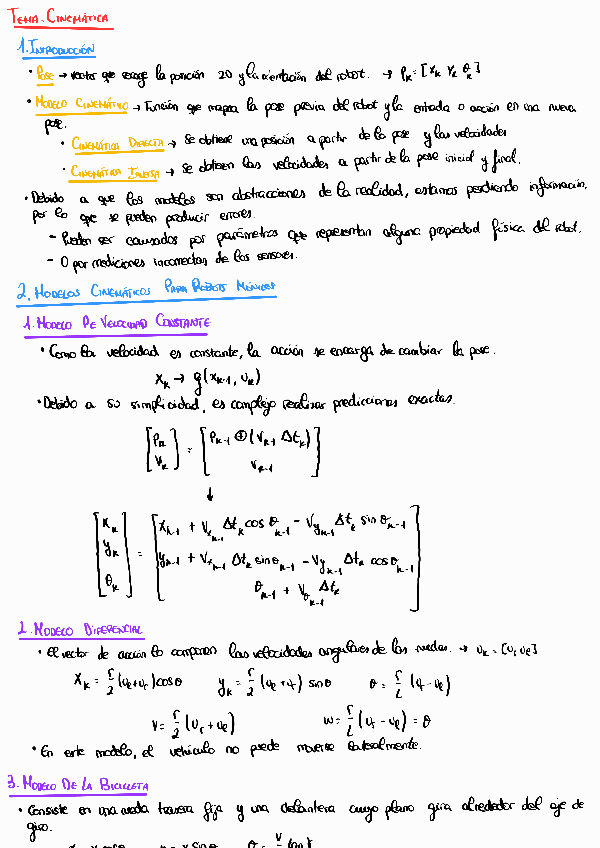 TEMA. CINEMÁTICA
1. INTRODUCCIÓN
• POSE → vector que recoge la posición 2D y la orientación del robot. → Pk = [Xk Yk θk]
• MODELO CINEMÁTICO → Función que mapea la pose previa del robot y la entrada o acción en una nueva
pose.
• CINEMÁTICA DIRECTA → Se obtiene una posición a partir de la pose y las velocidades
• CINEMÁTICA INVERSA → Se obtienen las velocidades a partir de la pose inicial y final.
• Debido a que los modelos son abstracciones de la realidad, estamos perdiendo información,
por lo que se pueden producir errores.
– Pueden ser causados por parámetros que representan alguna propiedad física del robot.
– O por mediciones incorrectas de los sensores.
2. MODELOS CINEMÁTICOS PARA ROBOTS MÓVILES
1. MODELO DE VELOCIDAD CONSTANTE
• Como la velocidad es constante, la acción se encarga de cambiar la pose.
Xk → g(xk-1, uk)
• Debido a su simplicidad, es complejo realizar predicciones exactas.
[Pk Vk] = [Pk-1 ⊕ (Vk-1 Δtk) Vk-1]
↓
[Xk yk θk] = [Xk-1 + Vxk-1 Δtk cos θk-1 − Vyk-1 Δtk sin θk-1
yk-1 + Vxk-1 Δtk sin θk-1 − Vyk-1 Δtk cos θk-1
θk-1 + Vθk-1 Δtk]
2. MODELO DIFERENCIAL
• El vector de acción lo componen las velocidades angulares de las ruedas. → uk = [ur ul]
Xk = r/2 (ul+ur) cos θ yk = r/2 (ul+ur) sin θ θ = r/L (ur−ul)
V = r/2 (ur + ul) w = r/L (ur − ul) = θ
• En este modelo, el vehículo no puede moverse lateralmente.
3. MODELO DE LA BICICLETA
• Consiste en una rueda trasera fija y una delantera cuyo plano gira alrededor del eje de
giro.